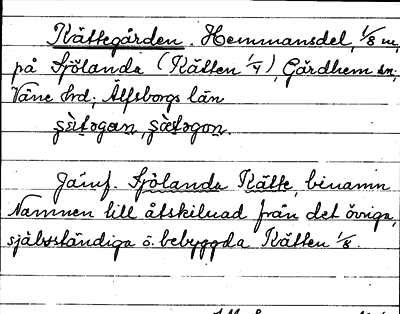 Kättegården. Hemmansdel, 1/8 m,
på Sjölanda (Kätten 1/4), Gärdhem sn;
Väne hd; Älfsborgs län
Jämf. Sjölanda Kätte, binamn
Namnen till åtskilnad från det övriga,
självständiga o. bebyggda Kätten 1/8.